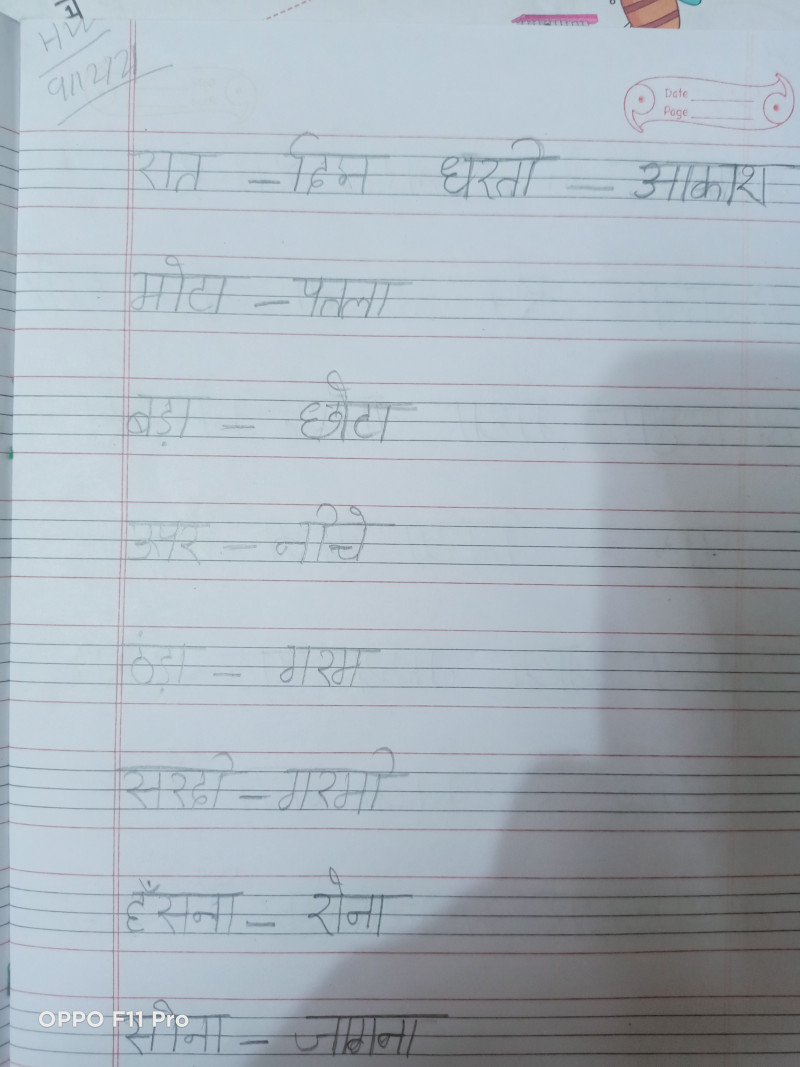 1
HW
9/12/21
Date
Page
रात – दिन धरती – आकाश
मोटा – पतला
बड़ा – छोटा
उपर – नीचे
ठंड़ा – गरम
सरदी – गरमी
हँसना – रोना
सोना – जागना
OPPO F11 Pro